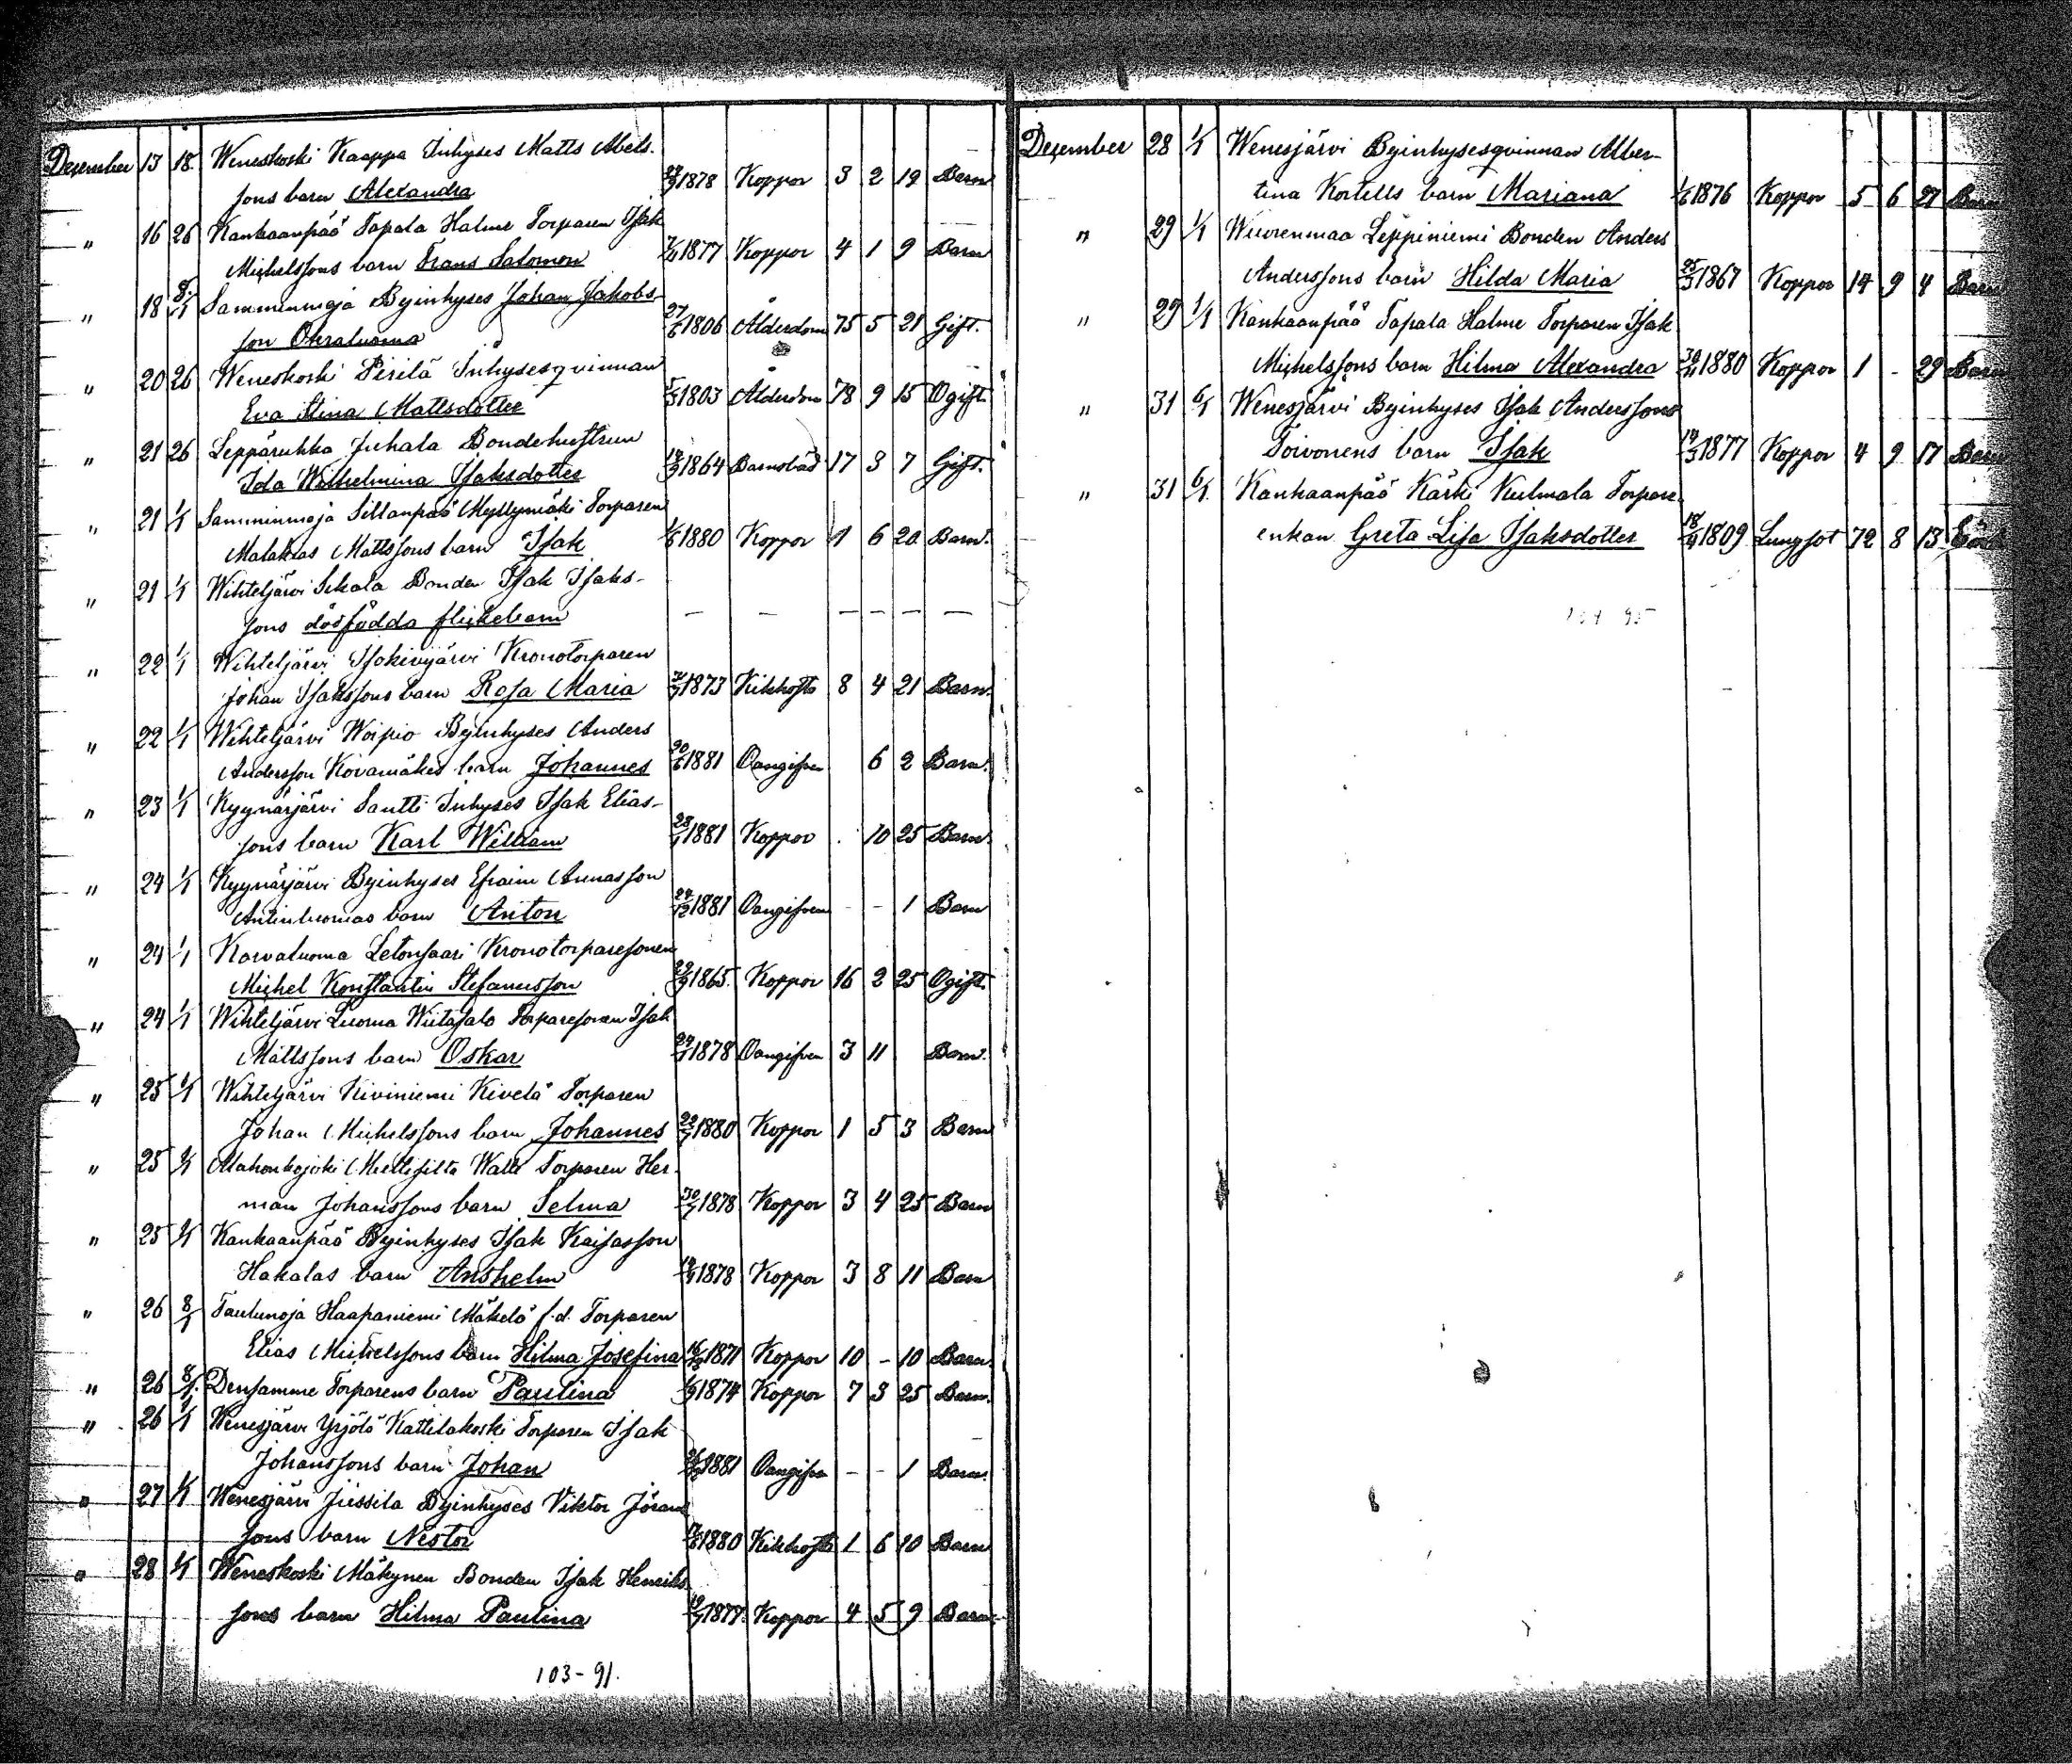 Dezember 13 18 Weneskoski Kaappa Inhyses Matts Abels-
sons barn Alexandra 1878 Koppor 3 2 19 Barn
" 16 26 Kankaanpää Tapala Halme Torparen Isak
Michelssons barn Frans Salomon 7/11 1877 Koppor 4 1 9 Barn
" 18 8/1 Samminmaja Byinhyses Johan Jakobs-
son Ohraluoma 27/6 1806 Ålderdom 75 5 21 Gift.
" 20 26 Weneskoski Pirilä Inhysesqvinnan
Eva Stina Mattsdotter 5/3 1803 Ålderdom 78 9 15 Ogift.
" 21 26 Leppäruhka Juhala Bondehustrun
Ida Wilhelmina Isaksdotter 14/9 1864 Barnsbäd 17 3 7 Gift.
" 21 1/1 Samminmaja Sillanpää Myllymäki Torparen
Malakias Mattssons barn Isak 1/6 1880 Koppor 1 6 20 Barn.
" 21 1/1 Wihteljärvi Sikala Bonden Isak Isaks-
sons dödfödda flickebarn — — — — — —
" 22 1/1 Wihteljärvi Isokivijärvi Kronotorparen
Johan Isakssons barn Rosa Maria 1873 Kikhosta 8 4 21 Barn.
" 22 1/1 Wihteljärvi Woipio Byinhyses Anders
Andersson Kovamäkes barn Johannes 20/6 1881 Oangifven 6 2 Barn.
" 23 1/1 Kyynärjärvi Santti Inhyses Isak Elias-
sons barn Karl William 28/1 1881 Koppor . 10 25 Barn.
" 24 1/1 Kyynärjärvi Byinhyses Efraim Annasson
Antinluomas barn Anton 1881 Oangifven - - 1 Barn
" 24 1/1 Karvaluoma Letonsaari Kronotorparesonen
Michel Konstantin Stefansson 29/9 1865. Koppor 16 2 25 Ogift.
" 24 1/1 Wihteljärvi Luoma Wiitasalo Torparesonen Isak
Mattssons barn Oskar 24/1 1878 Oangifven 3 11 Barn.
" 25 1/1 Wihteljärvi Kiviniemi Kivelä Torparen
Johan Michelssons barn Johannes 22/7 1880 Koppor 1 5 3 Barn
" 25 Alahonkajoki Torparen Her-
man Johanssons barn Selma 30/7 1878 Koppor 3 4 25 Barn
" 25 Kankaanpää Byinhyses Isak Kaisasson
Hakalas barn Anshelm 14/4 1878 Koppor 3 8 11 Barn
" 26 8/1 Taulunoja Haapaniemi Mäkelä f.d. Torparen
Elias Michelssons barn Hilma Josefina 16/12 1871 Koppor 10 - 10 Barn.
" 26 8/1. Densamme Torparens barn Paulina 1/9 1874 Koppor 7 3 25 Barn.
" 26 1/1 Wenesjärvi Yrjölä Kattilakoski Torparen Isak
Johanssons barn Johan 1881 Oangifven - - 1 Barn.
" 27 1/1 Wenesjärvi Jussila Byinhyses Viktor Jörans
sons barn Nestor 17/6 1880 Kikhosta 1 6 10 Barn
" 28 1/1 Weneskoski Mäkynen Bonden Isak Henriks
sons barn Hilma Paulina 19/7 1877. Koppor 4 5 9 Barn.
103-91.
Dezember 28 1/1 Wenesjärvi Byinhysesqvinnan Alber-
tina Kortells barn Mariana 1/6 1876 Koppor 5 6 27 Barn
" 29 1/1 Wuorenmaa Leppiniemi Bonden Anders
Anderssons barn Hilda Maria 25/3 1867 Koppor 14 9 4 Barn
" 29 1/1 Kankaanpää Tapala Halme Torparen Isak
Michelssons barn Hilma Alexandra 30/11 1880 Koppor 1 - 29 Barn
" 31 6/1 Wenesjärvi Byinhyses Isak Anderssons
Toivonens barn Isak 14/3 1877 Koppor 4 9 17 Barn
" 31 6/1. Kankaanpää Kärki Kulmala Torpare-
enkan Greta Lisa Isaksdotter 18/4 1809 Lungsot 72 8 13